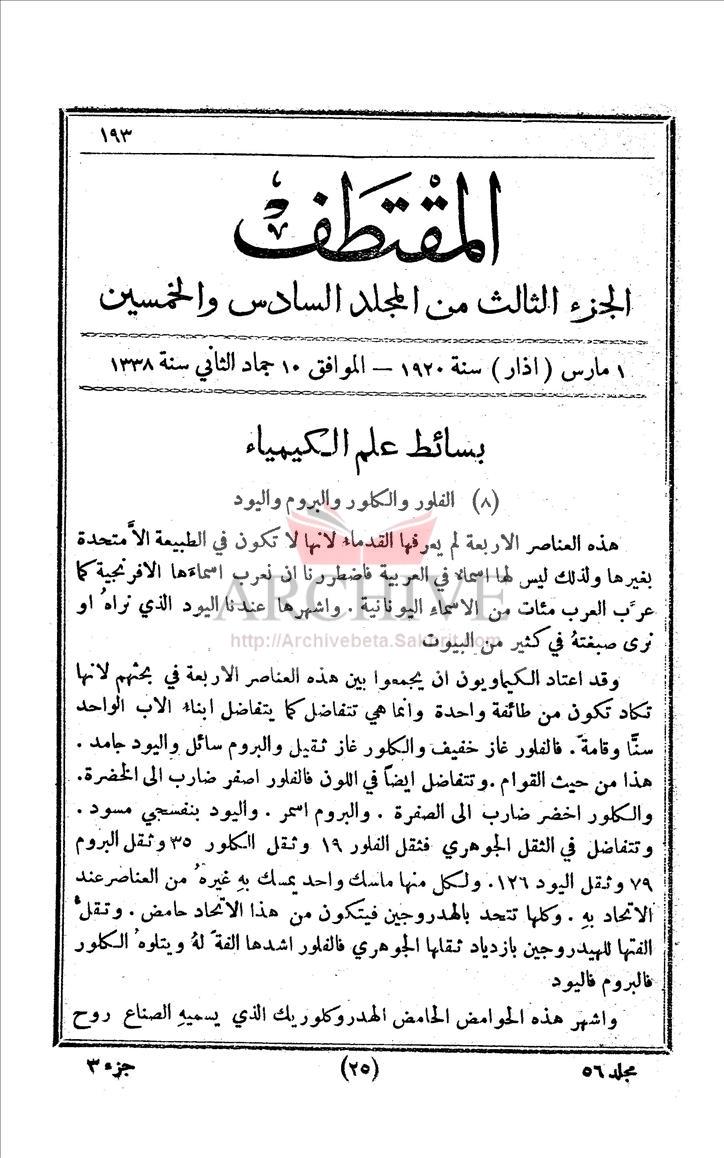 ١٩٣
المقتطف
الجزء الثالث من المجلد السادس والخمسين
١ مارس ( اذار ) سنة ١٩٢٠ — الموافق ١٠ جماد الثاني سنة ١٣٣٨
بسائط علم الكيمياء
(٨) الفلور والكلور والبروم واليود
هذه العناصر الاربعة لم يعرفها القدماء لانها لا تكون في الطبيعة الاَّ متحدة
بغيرها ولذلك ليس لها اسماء في العربية فاضطررنا ان نعرب اسماءَها الافرنجية كما
عرَّب العرب مئات من الاسماء اليونانية . واشهرها عندنا اليود الذي نراهُ او
نرى صبغتهُ في كثير من البيوت
ARCHIVE
http://Archivebeta.Sakhrit.com
وقد اعتاد الكيماويون ان يجمعوا بين هذه العناصر الاربعة في بحثهم لانها
تكاد تكون من طائفة واحدة وانما هي تتفاضل كما يتفاضل ابناء الاب الواحد
سنًّا وقامة . فالفلور غاز خفيف والكلور غاز ثقيل والبروم سائل واليود جامد .
هذا من حيث القوام . وتتفاضل ايضاً في اللون فالفلور اصفر ضارب الى الخضرة.
والكلور اخضر ضارب الى الصفرة . والبروم اسمر . واليود بنفسجي مسود .
وتتفاضل في الثقل الجوهري فثقل الفلور ١٩ وثقل الكلور ٣٥ وثقل البروم
٧٩ وثقل اليود ١٢٦. ولكل منها ماسك واحد يمسك بهِ غيرهُ من العناصر عند
الاتحاد بهِ . وكلها تتحد بالهدروجين فيتكون من هذا الاتحاد حامض . وتقلُّ
الفتها للهيدروجين بازدياد ثقلها الجوهري فالفلور اشدها الفة لهُ ويتلوهُ الكلور
فالبروم فاليود
واشهر هذه الحوامض الحامض الهدروكلوريك الذي يسميهِ الصناع روح
مجلد ٥٦
(٢٥)
جزء ٣